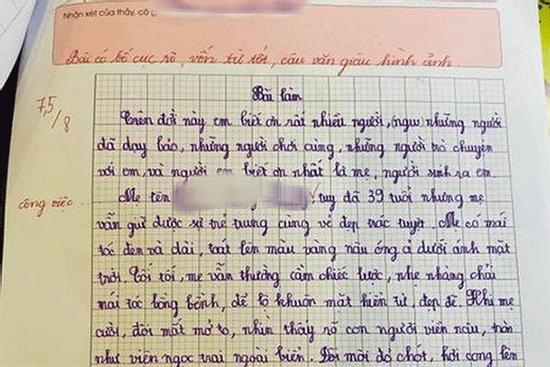 Nhận xét của thầy, cô
Bài có bố cục rõ, vốn từ tốt, câu văn giàu hình ảnh
7,5/8
Bài làm
Trên đời này em biết ơn rất nhiều người, những người
đã dạy bảo, những người chơi cùng, những người trò chuyện
với em, và người em biết ơn nhất là mẹ, người sinh ra em.
công việc
Mẹ tên tuy đã 39 tuổi nhưng mẹ
vẫn giữ được sự trẻ trung cùng vẻ đẹp trác tuyệt. Mẹ có mái
tóc đen và dài, toát lên màu vàng nâu óng ả dưới ánh mặt
trời. Tối tối, mẹ vẫn thường cầm chiếc lược, nhẹ nhàng chải
mái tóc bồng bềnh, để lộ khuôn mặt hiền từ, đẹp đẽ. Khi mẹ
cười, đôi mắt mở to, nhìn thấy rõ con người viền nâu, tròn
như viên ngọc trai ngoài biển. Đôi môi đỏ chót, hơi cong lên